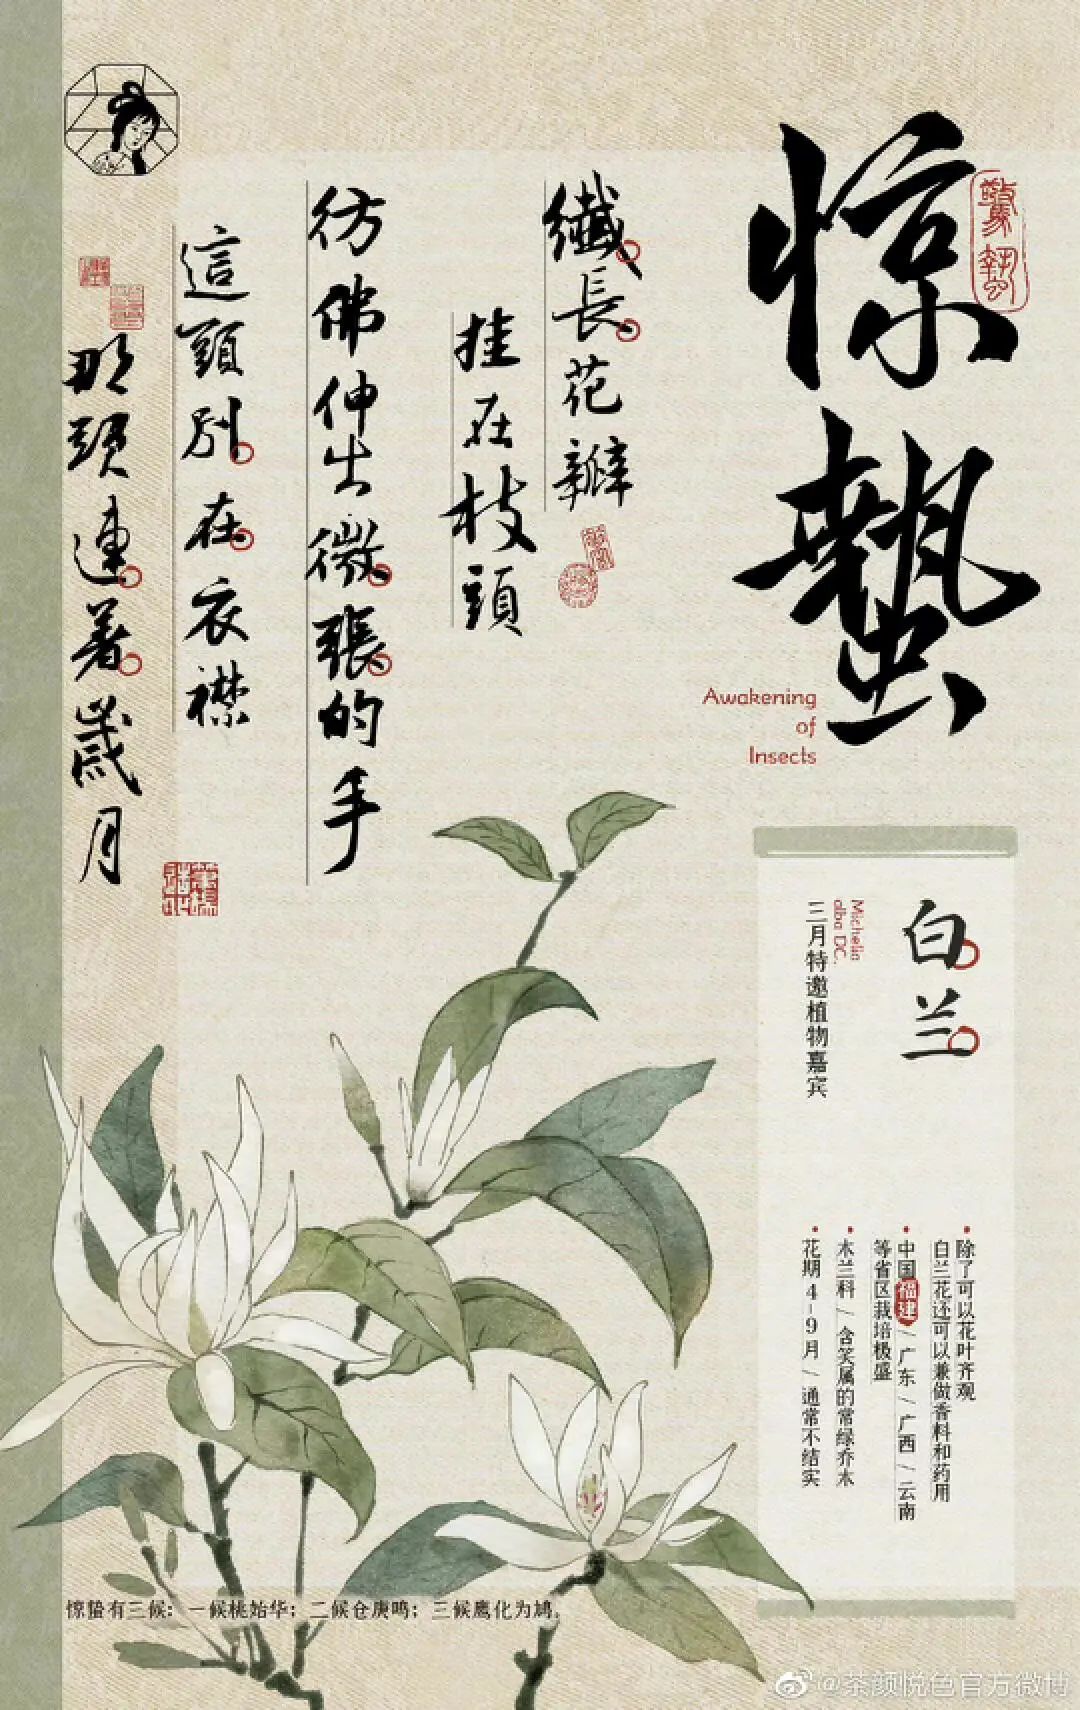 惊蛰
驚蟄
Awakening
of
Insects
纖長花瓣
挂在枝頭
彷彿伸出微張的手
這頭別在衣襟
那頭連着歲月
白兰
Michelia
alba DC.
三月特邀植物嘉宾
除了可以花叶齐观
白兰花还可以兼做香料和药用
中国福建/广东/广西/云南
等省区栽培极盛
木兰科/含笑属的常绿乔木
花期4-9月/通常不结实
惊蛰有三候：一候桃始华；二候仓庚鸣；三候鹰化为鸠。
@茶颜悦色官方微博